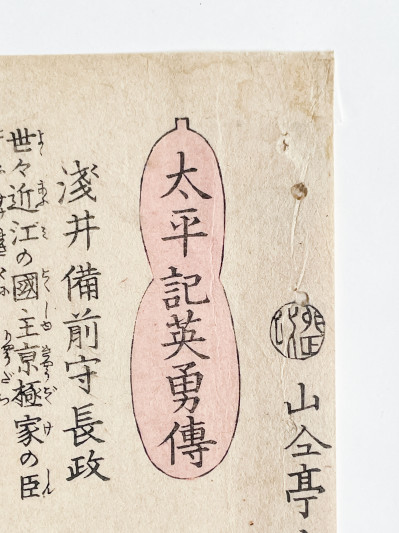 山仝亭
太平記英勇傳
淺井備前守長政
世々近江の國主京極家の臣